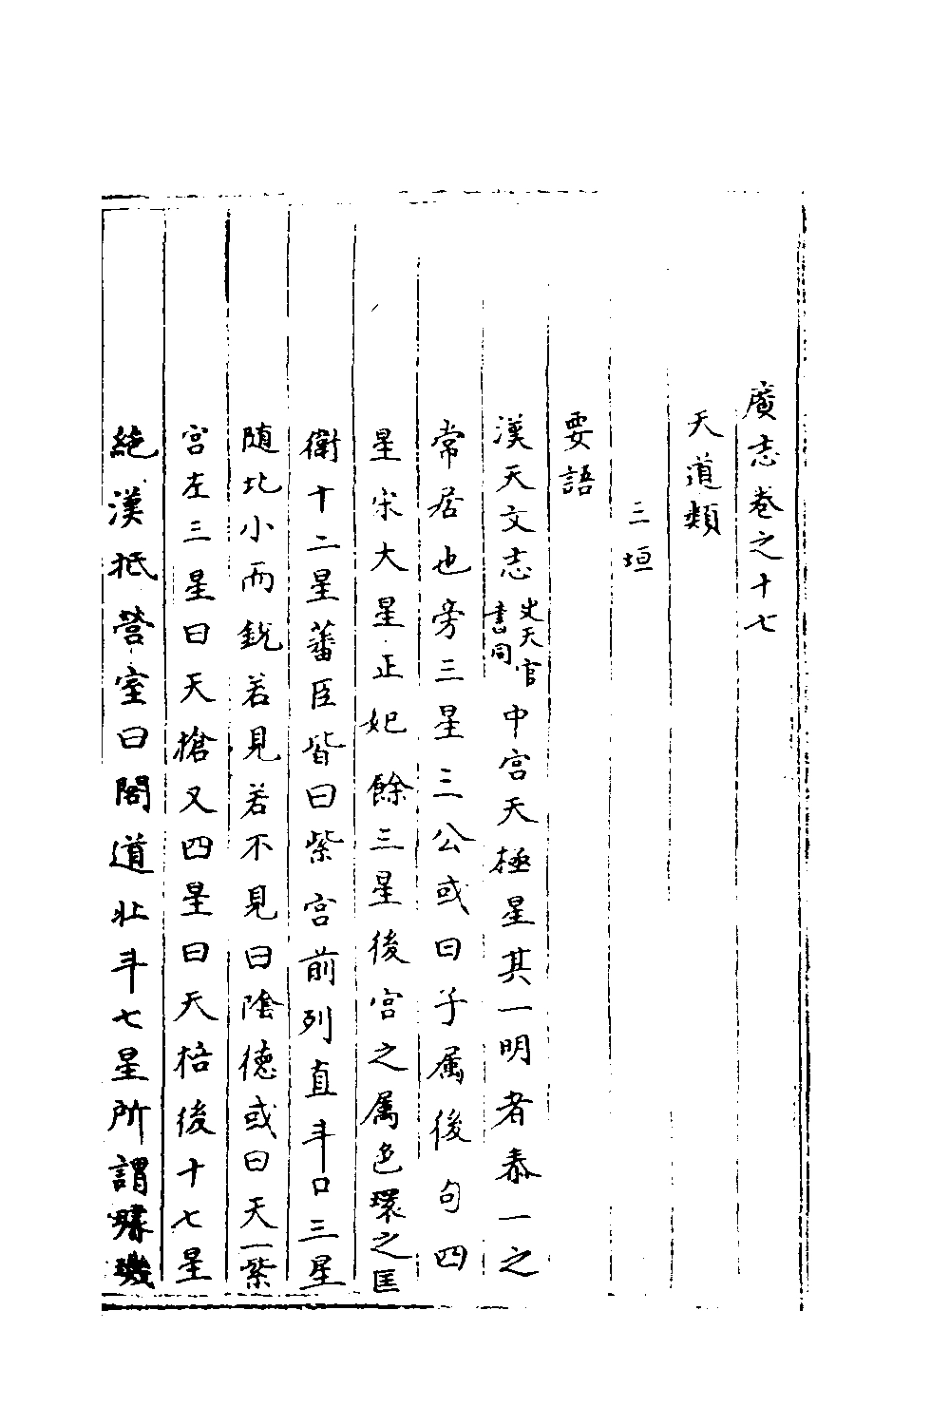 廣志卷之十七
天道類
三垣
要語
漢天文志史天官書同中宮天極星其一明者泰一之
常居也旁三星三公或曰子属後句四
星宋大星正妃餘三星後宮之属也環之匡
衛十二星蕃臣皆曰紫宮前列直斗口三星
随北小而銳若見若不見曰陰德或曰天一紫
宮左三星曰天搶又四星曰天棓後十七星
絶漢抵營室曰閣道北斗七星所謂璇璣